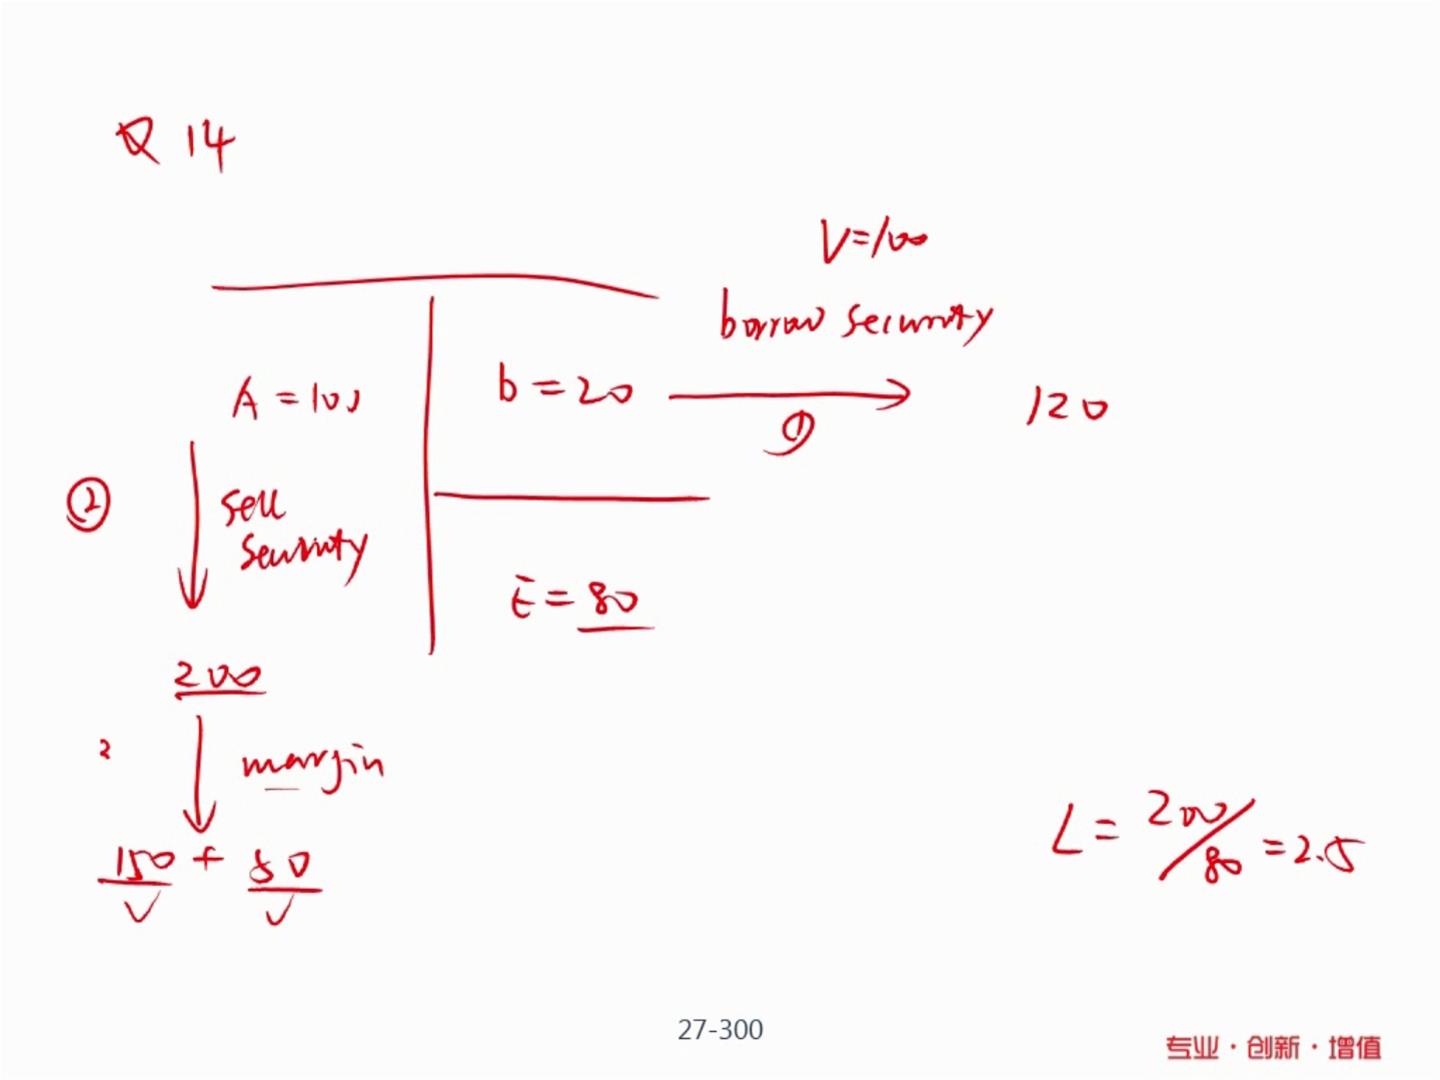 Q 14
V=100
borrow security
A = 100
b = 20
①
120
②
sell
security
E = 80
200
3
margin
150 + 50
L = 200/80 = 2.5
27-300
专业·创新·增值